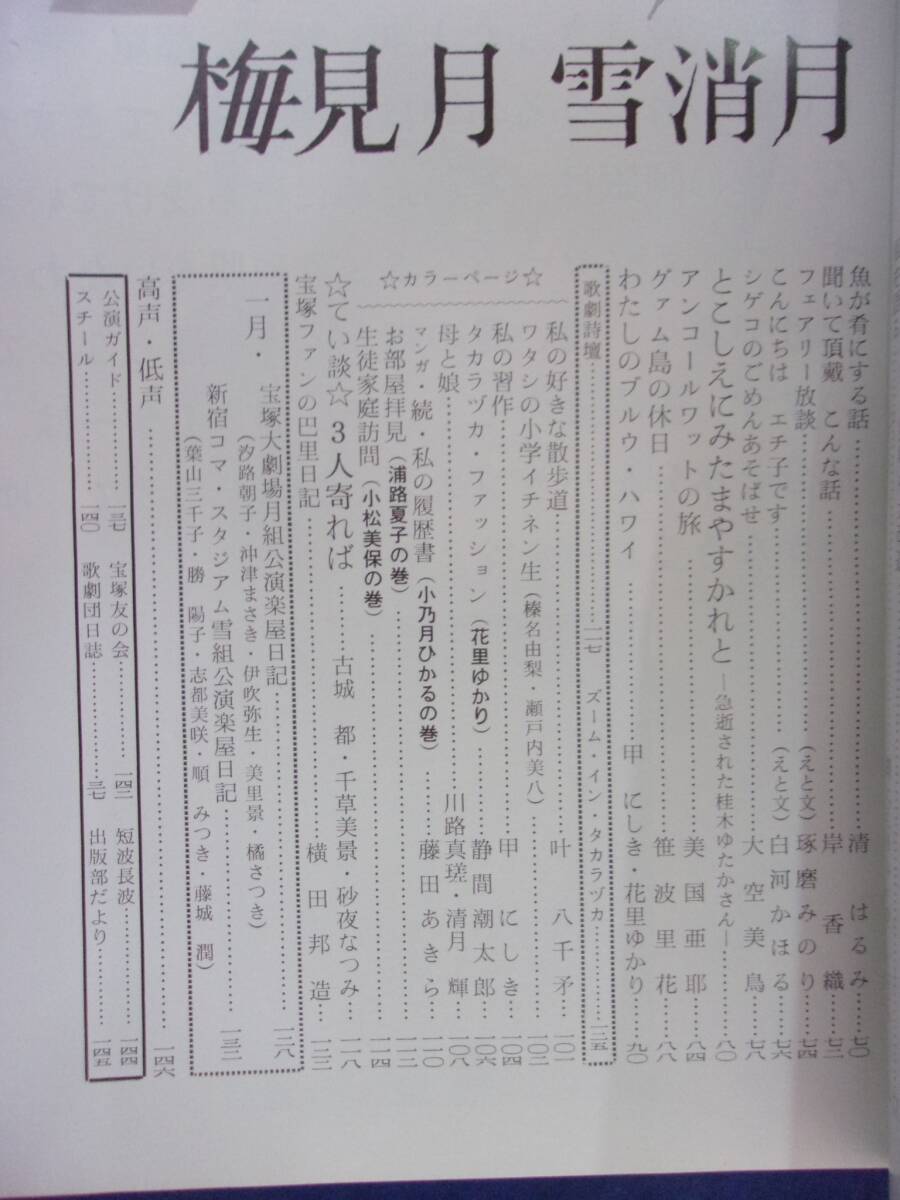 梅見月 雪消月
魚が肴にする話……………清 はるみ…七〇
聞いて頂戴 こんな話……………岸 香織…七二
フェアリー放談……………(えと文)琢磨みのり…七四
こんにちは エチ子です……………(えと文)白河かほる…七六
シゲコのごめんあそばせ……………大空美鳥…七八
とこしえにみたまやすかれと ―急逝された桂木ゆたかさん―…八〇
アンコールワットの旅……………美国亜耶…八四
グァム島の休日……………笹波里花…八八
わたしのブルウ・ハワイ……………甲 にしき・花里ゆかり…九〇
歌劇詩壇……………一一七 ズーム・イン・タカラヅカ……………一三五
☆カラーページ☆
私の好きな散歩道……………叶 八千矛…一〇一
ワタシの小学イチネン生(榛名由梨・瀬戸内美八)…一〇二
私の習作……………甲 にしき…一〇四
タカラヅカ・ファッション(花里ゆかり)……………静間潮太郎…一〇六
母と娘……………川路真瑳・清月 輝…一〇八
マンガ・続・私の履歴書(小乃月ひかるの巻)……………藤田あきら…一一〇
お部屋拝見(浦路夏子の巻)……………一一二
生徒家庭訪問(小松美保の巻)……………一一四
☆てい談☆ 3人寄れば……古城 都・千草美景・砂夜なつみ…一一八
宝塚ファンの巴里日記……………横田邦造…一二三
一月・ 宝塚大劇場月組公演楽屋日記……………一二八
(汐路朝子・沖津まさき・伊吹弥生・美里景・橘さつき)
新宿コマ・スタジアム雪組公演楽屋日記……………一三二
(葉山三千子・勝 陽子・志都美咲・順 みつき・藤城 潤)
高声・低声……………一四六
公演ガイド……………一三七 宝塚友の会……………一四二 短波長波……………一四四
スチール……………一四〇 歌劇団日誌……………三七 出版部だより……………一四五